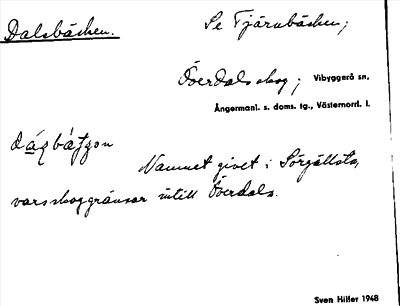 Dalsbäcken.
Se Tjärnbäcken;
Överdals skog; Vibyggerå sn,
Ångermanl. s. doms. tg., Västernorrl. l.
Namnet givet i Sörgällsta,
vars skog gränsar intill Överdals.
Sven Hilfer 1948